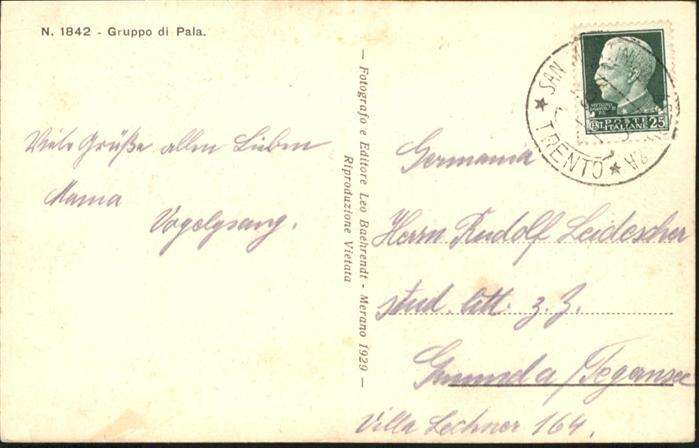 N. 1842 - Gruppo di Pala.
Viele Grüße allen Lieben
Mama
Vogelgsang.
— Fotografo e Editore Leo Baehrendt - Merano 1929 —
Riproduzione Vietata
POSTE
ITALIANE
CENT. 25
★ SAN MARTINO
TRENTO ★
Germania
Herrn Rudolf Leidescher
stud. litt. z. Z.
Gmund a/Tegernsee
Villa Lechner 164.